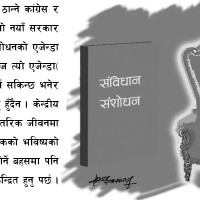 ठान्ने कांग्रेस र
यो नयाँ सरकार
शोधनको एजेन्डा
ज त्यो एजेन्डा
सकिन्छ भनेर
हुँदैन । केन्द्रीय
तरिक जीवनमा
कको भविष्यको
र्ने बहसमा पनि
न्द्रित हुनु पर्छ ।
संविधान
संशोधन